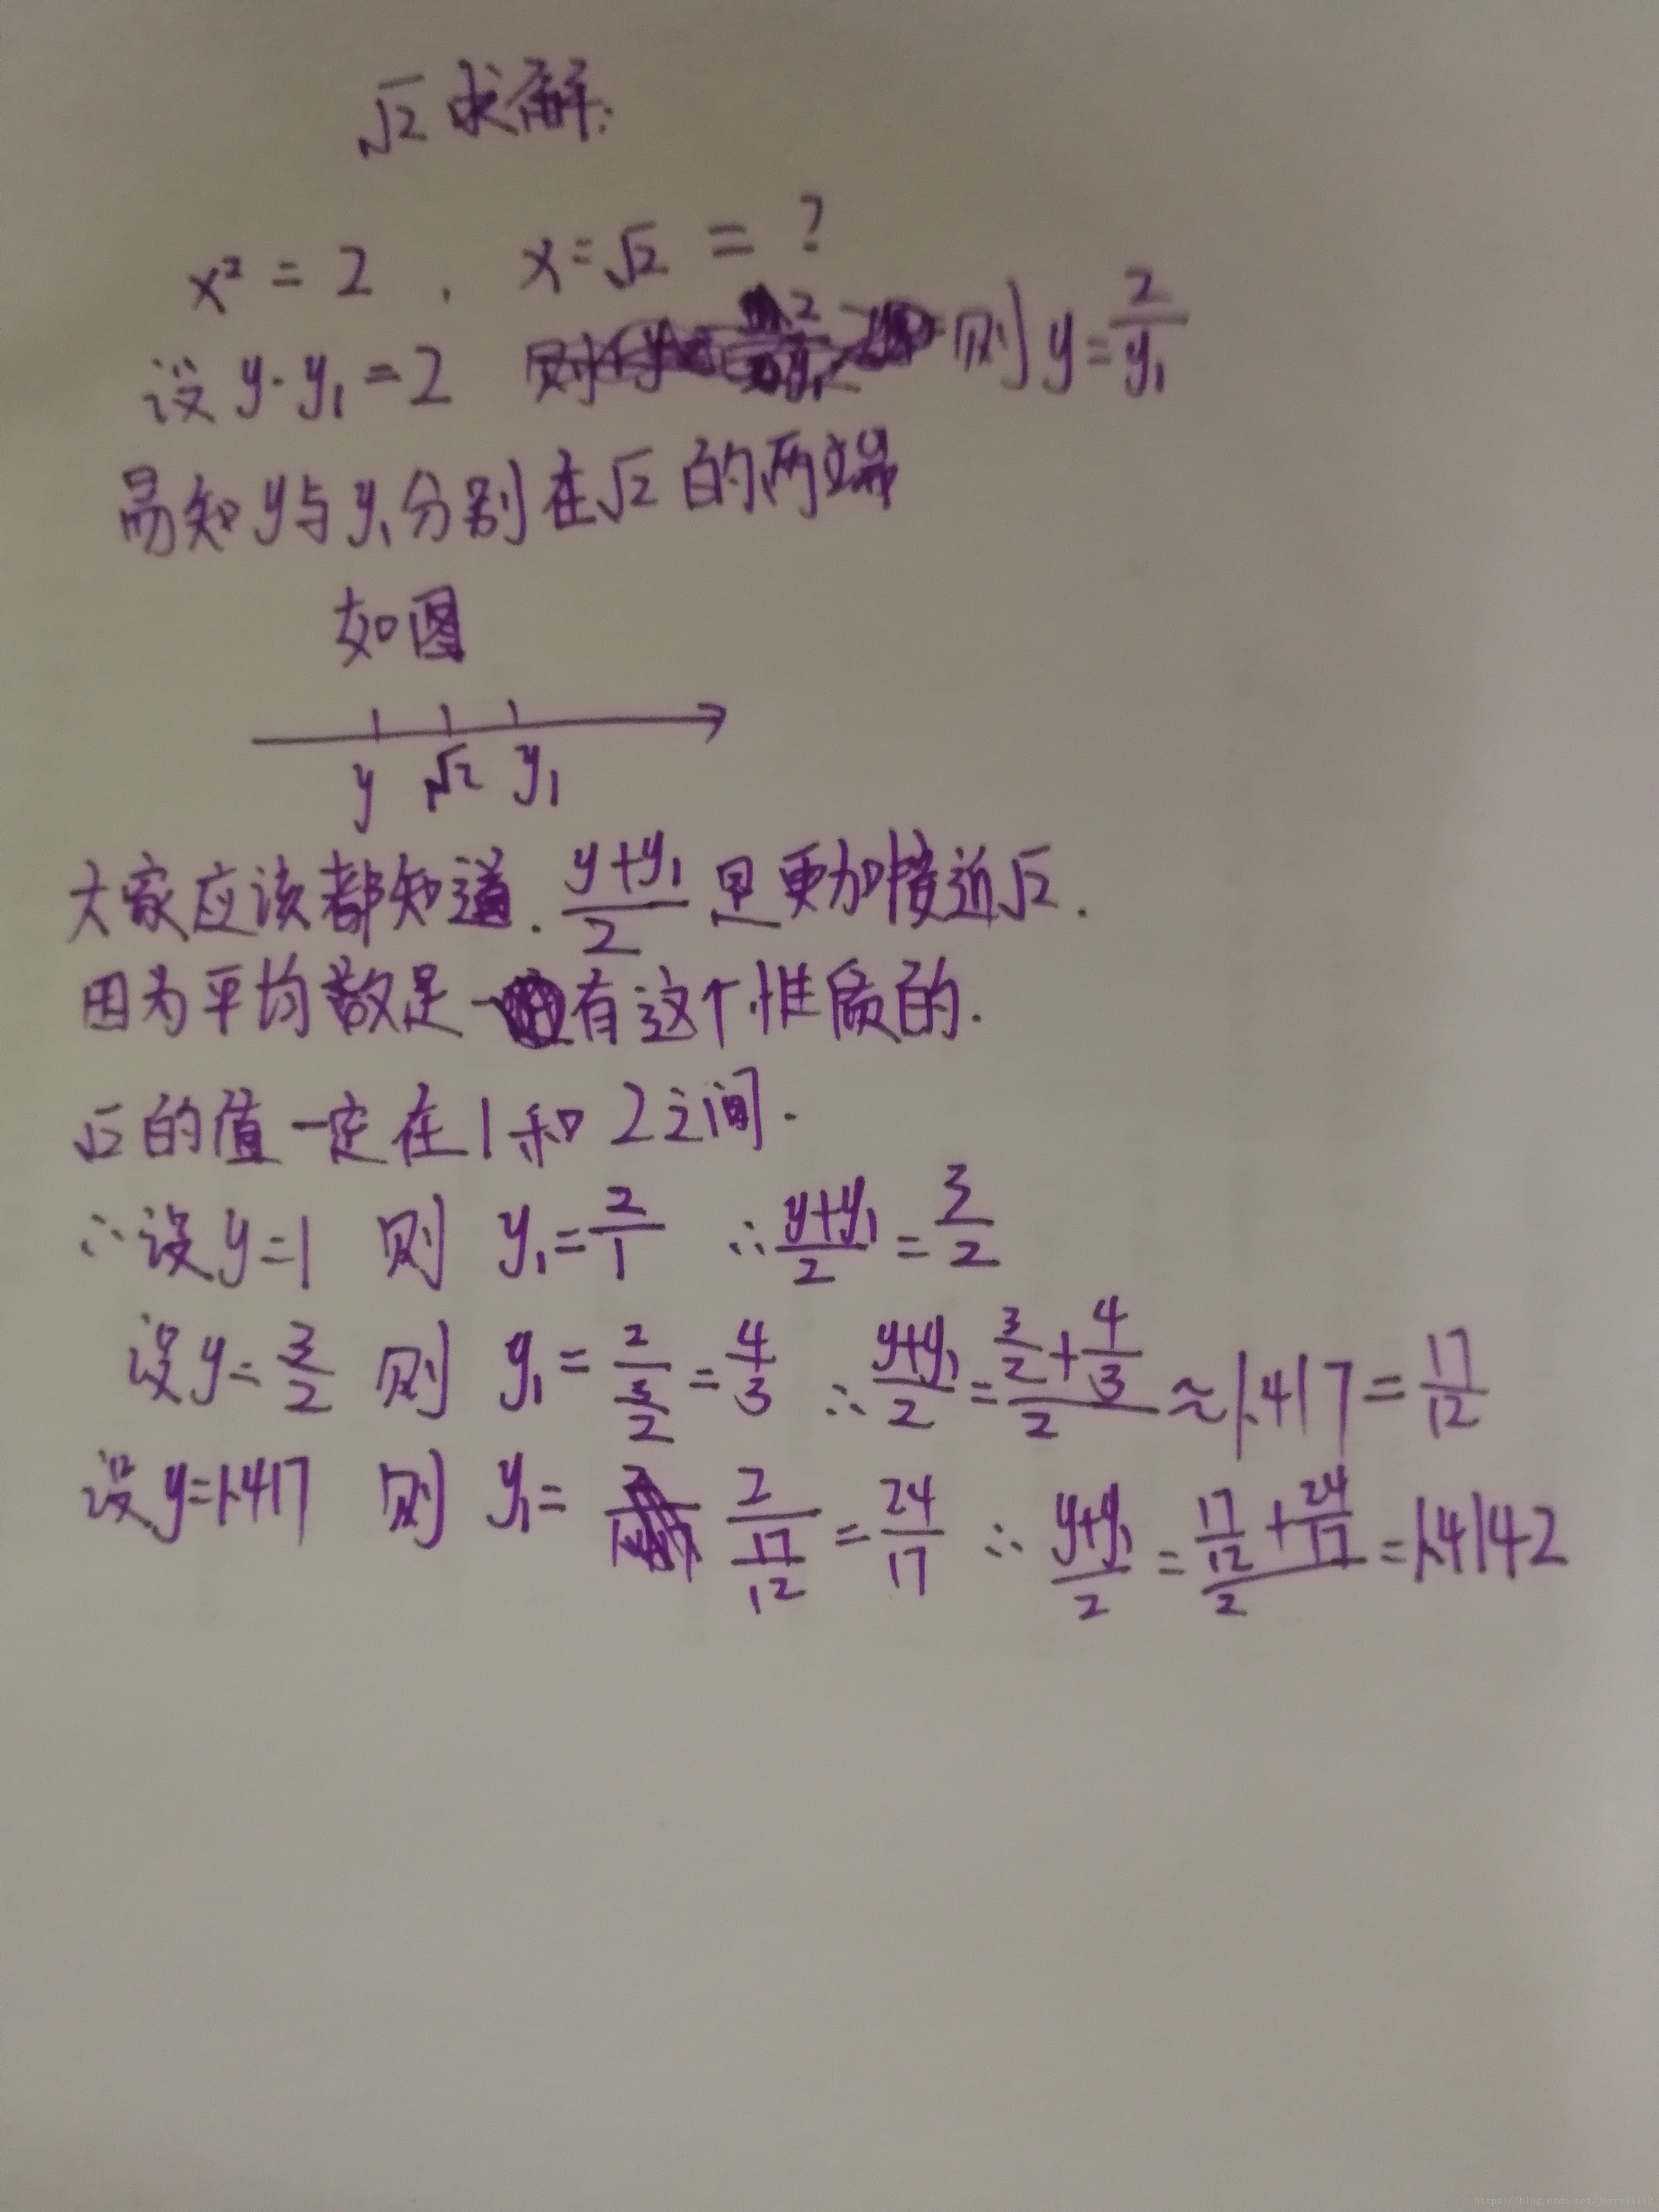 √2 求解:
x² = 2 , x=√2 = ?
设 y·y₁=2 则 y=2/y₁
易知 y与y₁分别在√2的两端
如图
y √2 y₁
大家应该都知道. (y+y₁)/2 是更加接近√2.
因为平均数是有这个性质的.
√2的值一定在1和2之间.
∴设y=1 则 y₁=2/1 ∴(y+y₁)/2=3/2
设y=3/2 则 y₁=2/(3/2)=4/3 ∴(y+y₁)/2=(3/2+4/3)/2≈1.417=17/12
设y=1.417 则 y₁= 2/(17/12)=24/17 ∴(y+y₁)/2=(17/12+24/17)/2=1.4142